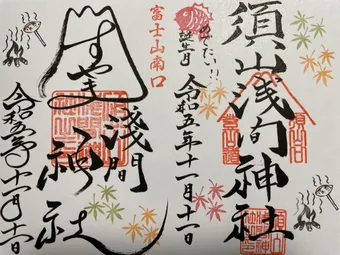 須山浅間神社
めでたい!!
誕生月
令和五年十一月十一日
富士山南口
すやま
浅間
神社
令和五年十一月十一日